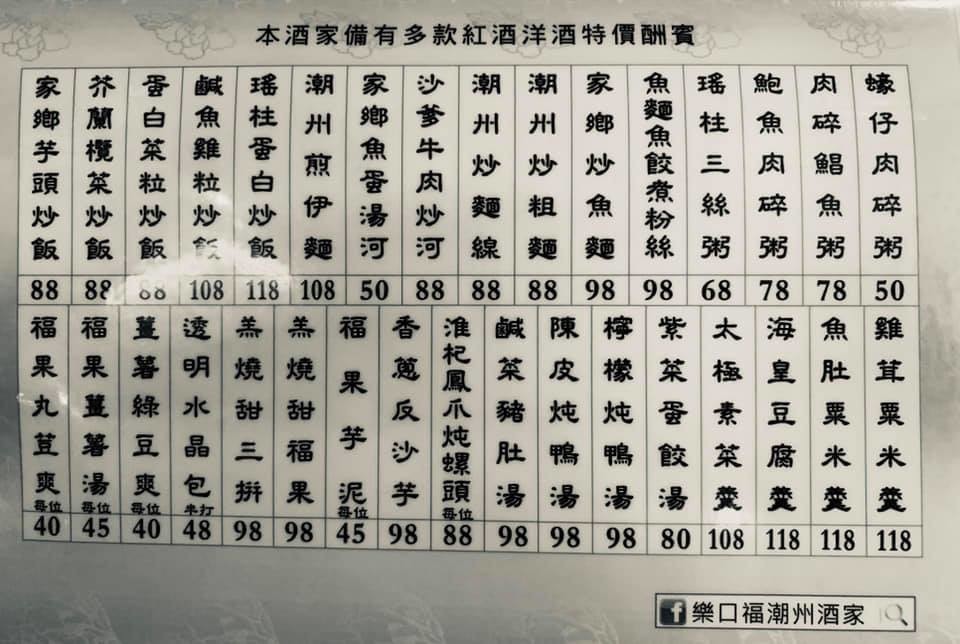 本酒家備有多款紅酒洋酒特價酬賓
蠔仔肉碎粥 50
肉碎鯧魚粥 78
鮑魚肉碎粥 78
瑤柱三絲粥 68
魚麵魚餃煮粉絲 98
家鄉炒魚麵 98
潮州炒粗麵 88
潮州炒麵線 88
沙爹牛肉炒河 88
家鄉魚蛋湯河 50
潮州煎伊麵 108
瑤柱蛋白炒飯 118
鹹魚雞粒炒飯 108
蛋白菜粒炒飯 88
芥蘭欖菜炒飯 88
家鄉芋頭炒飯 88
雞茸粟米羹 118
魚肚粟米羹 118
海皇豆腐羹 118
太極素菜羹 108
紫菜蛋餃湯 80
檸檬炖鴨湯 98
陳皮炖鴨湯 98
鹹菜豬肚湯 98
淮杞鳳爪炖螺頭 每位 88
香蔥反沙芋 98
福果芋泥 每位 45
羔燒甜福果 98
羔燒甜三拼 98
透明水晶包 半打 48
薑薯綠豆爽 每位 40
福果薑薯湯 每位 45
福果丸荳爽 每位 40
f 樂口福潮州酒家